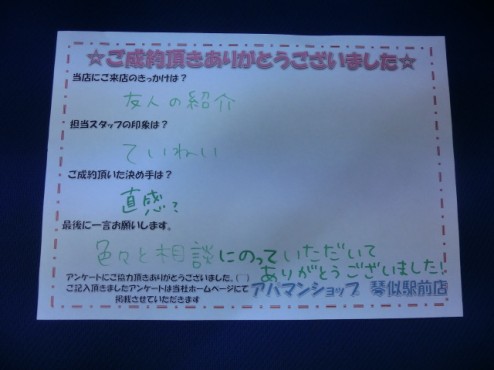 ☆ご成約頂きありがとうございました☆
当店にご来店のきっかけは？
友人の紹介
担当スタッフの印象は？
ていねい
ご成約頂いた決め手は？
直感？
最後に一言お願いします。
色々と相談にのっていただいて
ありがとうございました！
アンケートにご協力頂きありがとうございました。(^^)
ご記入頂きましたアンケートは当社ホームページにて
掲載させていただきます
アパマンショップ 琴似駅前店